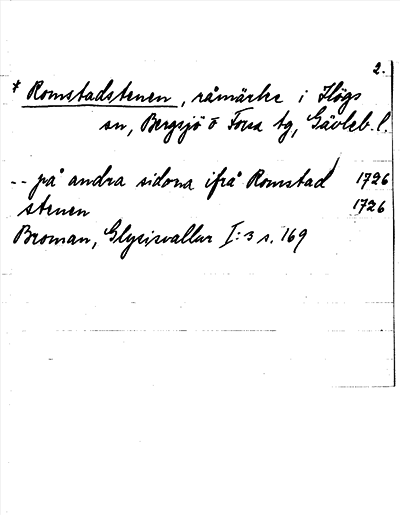 2.
* Romstadstenen, råmärke i Högs
sn, Bergsjö o Forsa tg, Gävleb. l.
-- på andra sidona ifrå Romstad/ 1726
stenen 1726
Broman, Glysisvallur I:3 s. 169